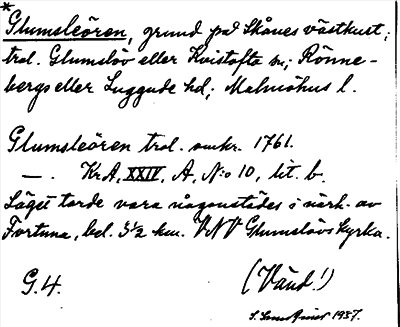 *Glumsleören, grund på Skånes västkust;
trol. Glumslöv eller Kvistofta sn; Rönne-
bergs eller Luggude hd; Malmöhus l.
Glumsleören trol. omkr. 1761.
—. KrA, XXIV, A, N:o 10, lit. b.
Läget torde vara någonstädes i närh. av
Fortuna, bel. 3½ km. VNV Glumslövs kyrka.
G.4. (Vänd!)
1937.